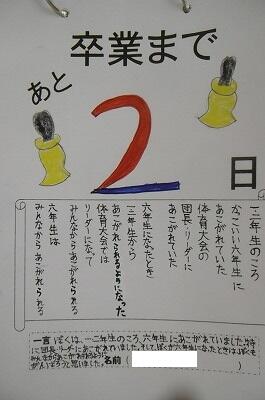 卒業まで
あと
2
日
一二年生のころ
かっこいい六年生に
あこがれていた
体育大会の
団長・リーダーに
あこがれていた
六年生になったとき
一二年生から
あこがれられるようになった
体育大会では
リーダーになって
みんなからあこがれられる
六年生は
みんなからあこがれられる
一言 ぼくは、一、二年生のころ、六年生にあこがれていました。特
に団長・リーダーにあこがれていました。そして、ぼくが六年生になったときは、ぼくも
みんながあこがれるように
がんばろうと思いました。 名前 )